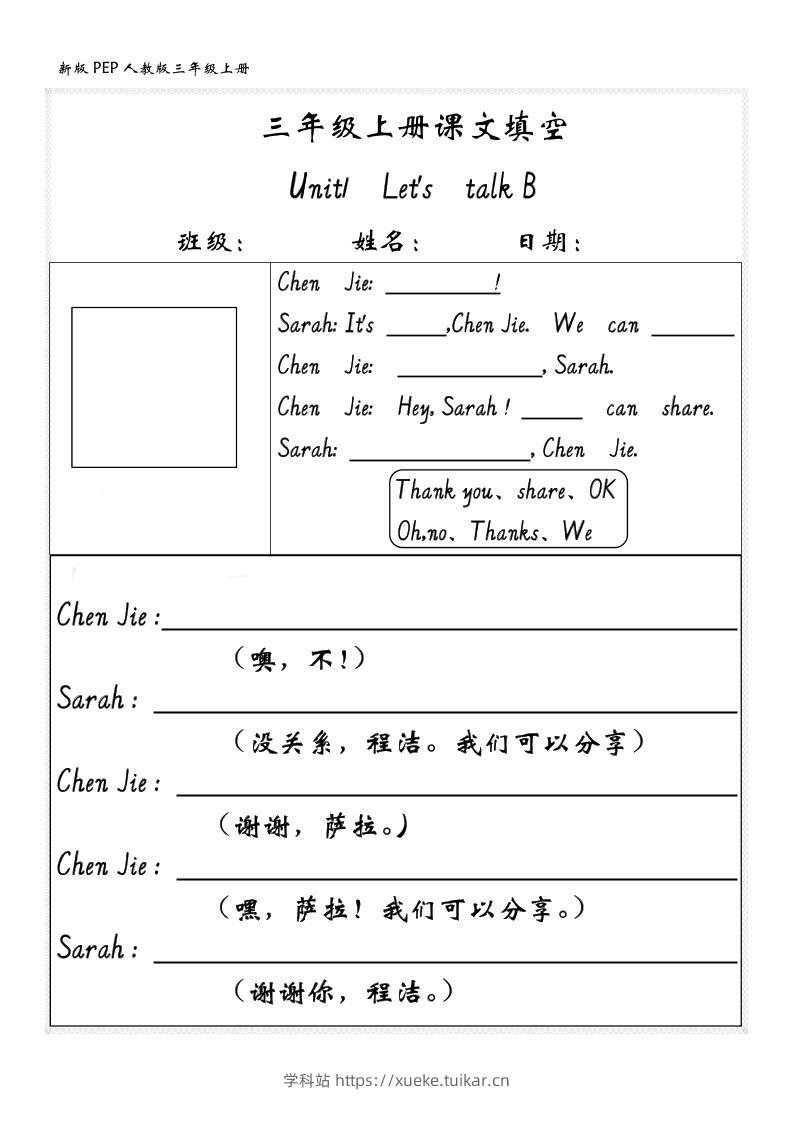 新版 PEP 人教版三年级上册
三年级上册课文填空
Unit1 Let's talk B
班级： 姓名： 日期：
Chen Jie: __________!
Sarah: It's _____,Chen Jie. We can _______
Chen Jie: ____________, Sarah.
Chen Jie: Hey, Sarah! _____ can share.
Sarah: _______________, Chen Jie.
Thank you、share、OK
Oh,no、Thanks、We
Chen Jie:
（噢，不！）
Sarah:
（没关系，程洁。我们可以分享）
Chen Jie:
（谢谢，萨拉。）
Chen Jie:
（嘿，萨拉！我们可以分享。）
Sarah:
（谢谢你，程洁。）
学科站 https://xueke.tuikar.cn